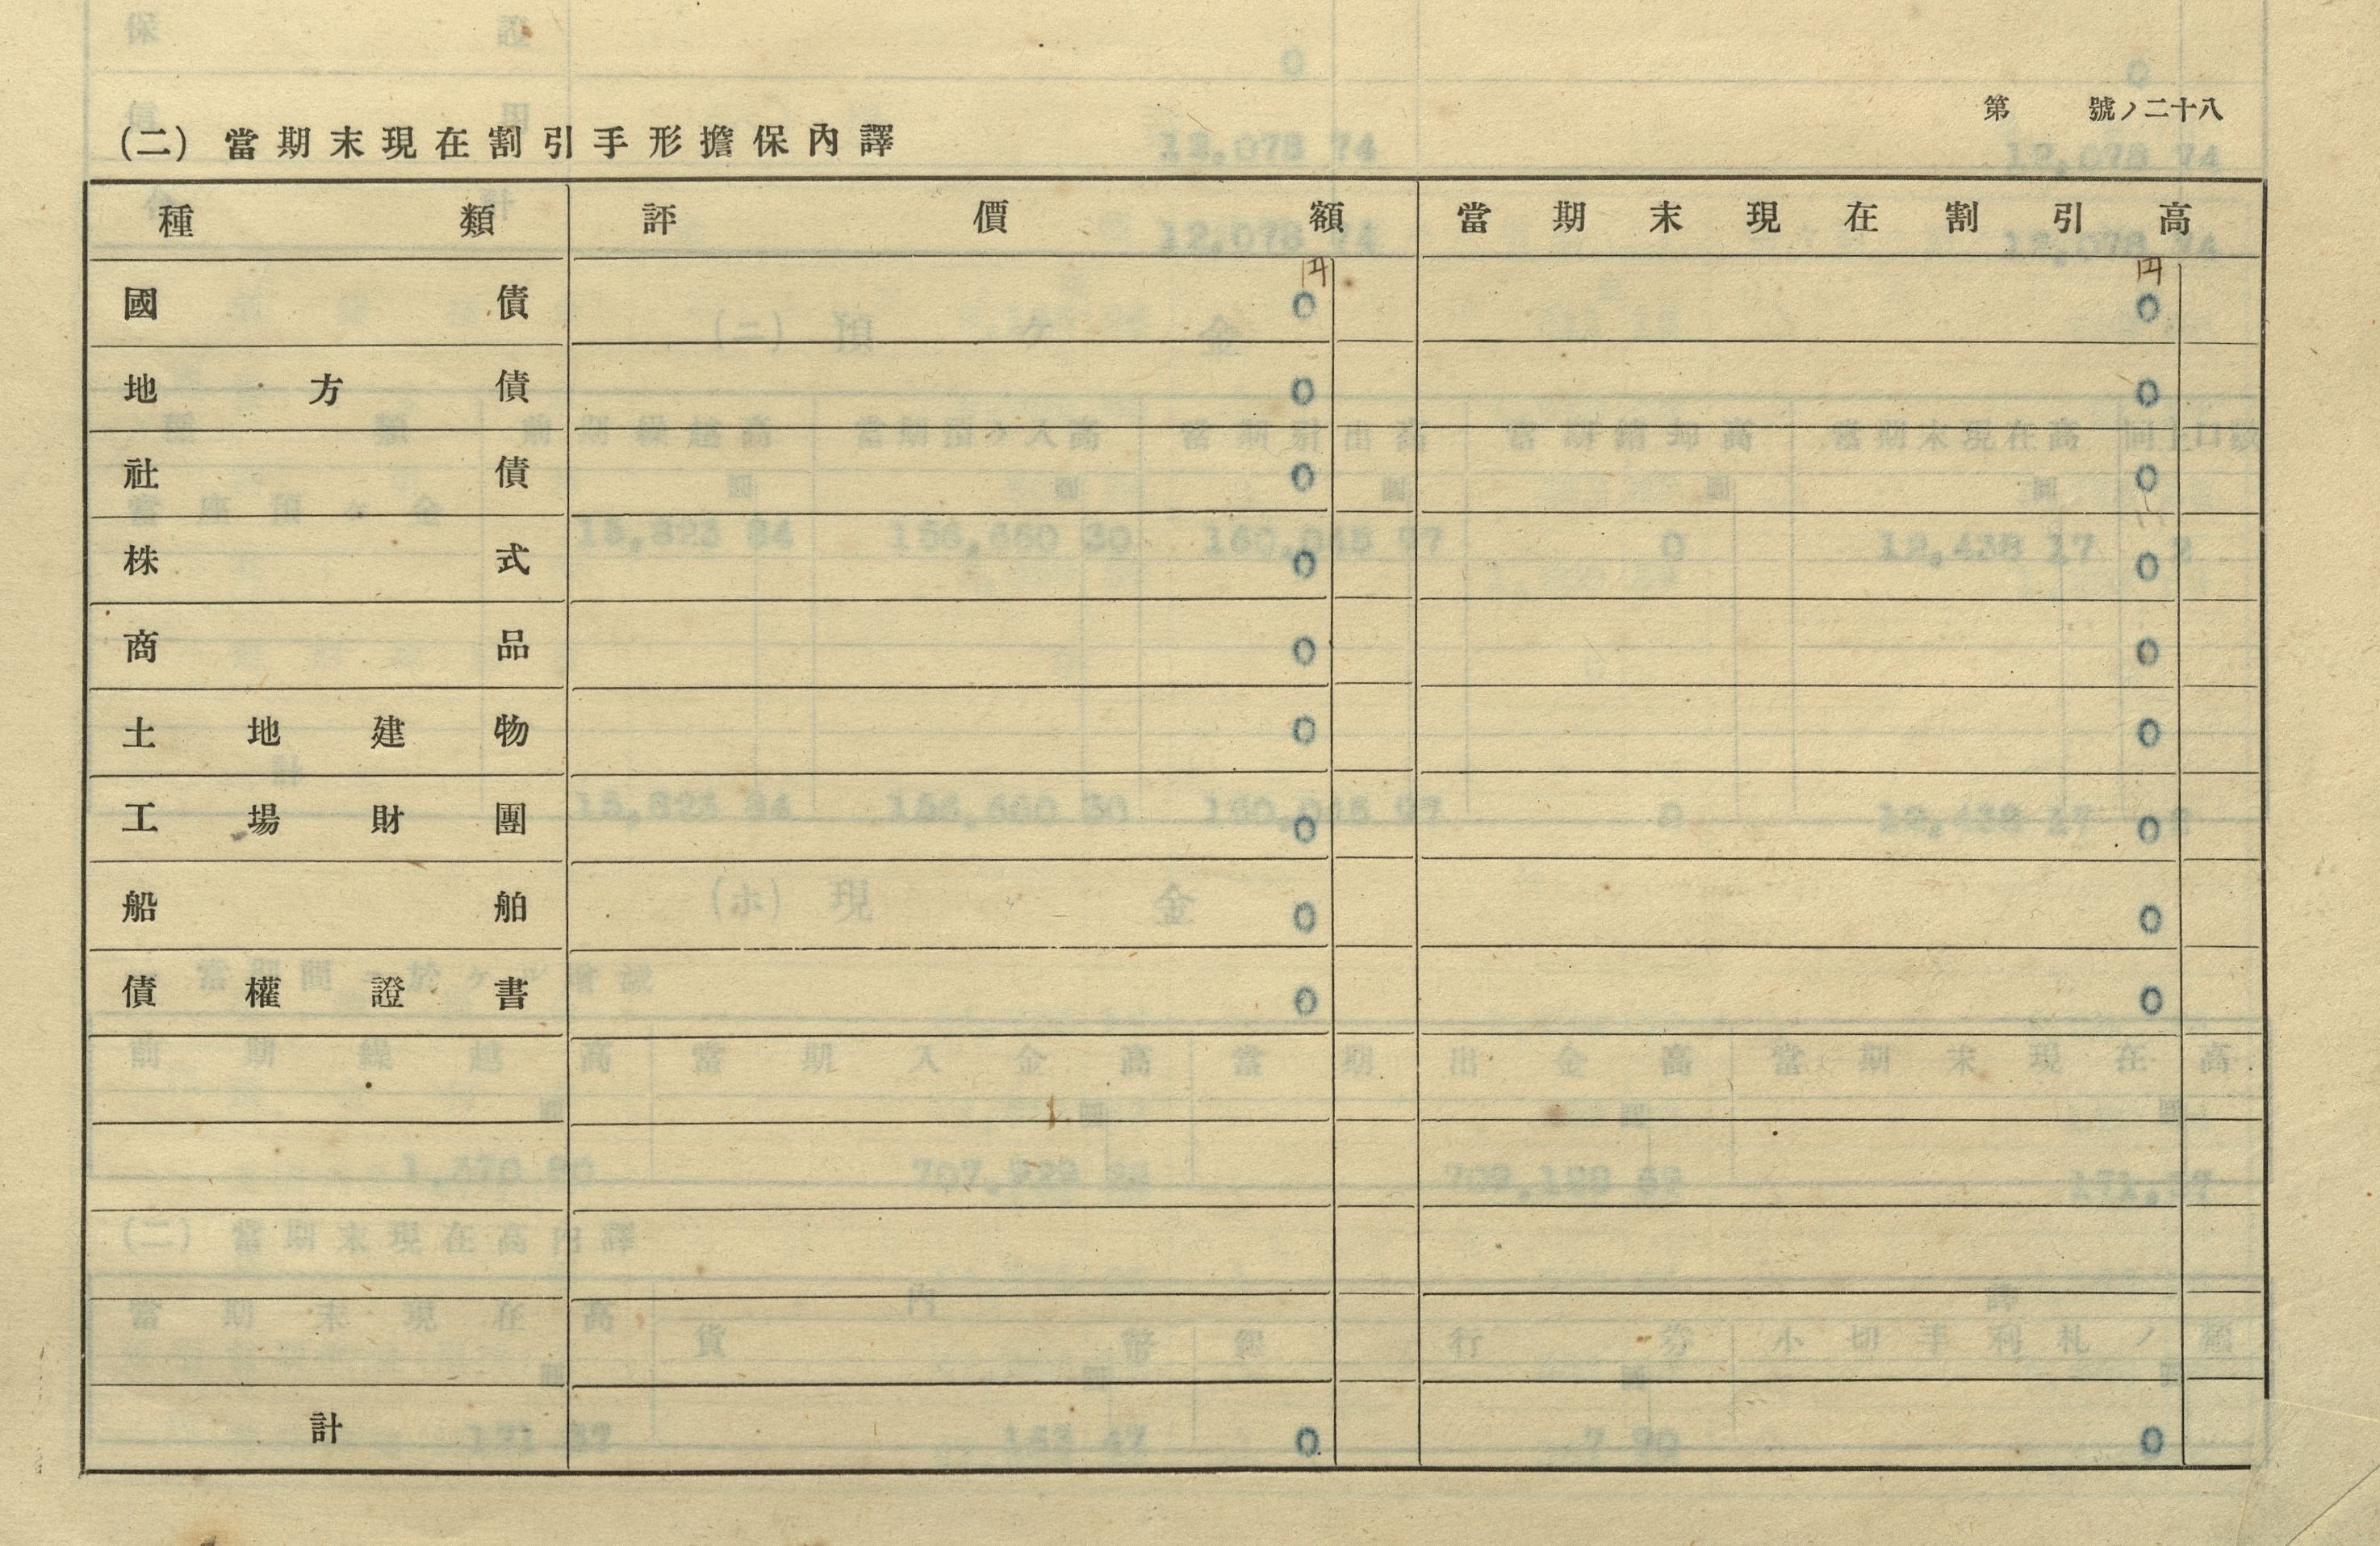 第 號ノ二十八
(二) 當期末現在割引手形擔保內譯
種類 評價額 當期末現在割引高
円 円
國債 0 0
地方債 0 0
社債 0 0
株式 0 0
商品 0 0
土地建物 0 0
工場財團 0 0
船舶 0 0
債權證書 0 0
計 0 0